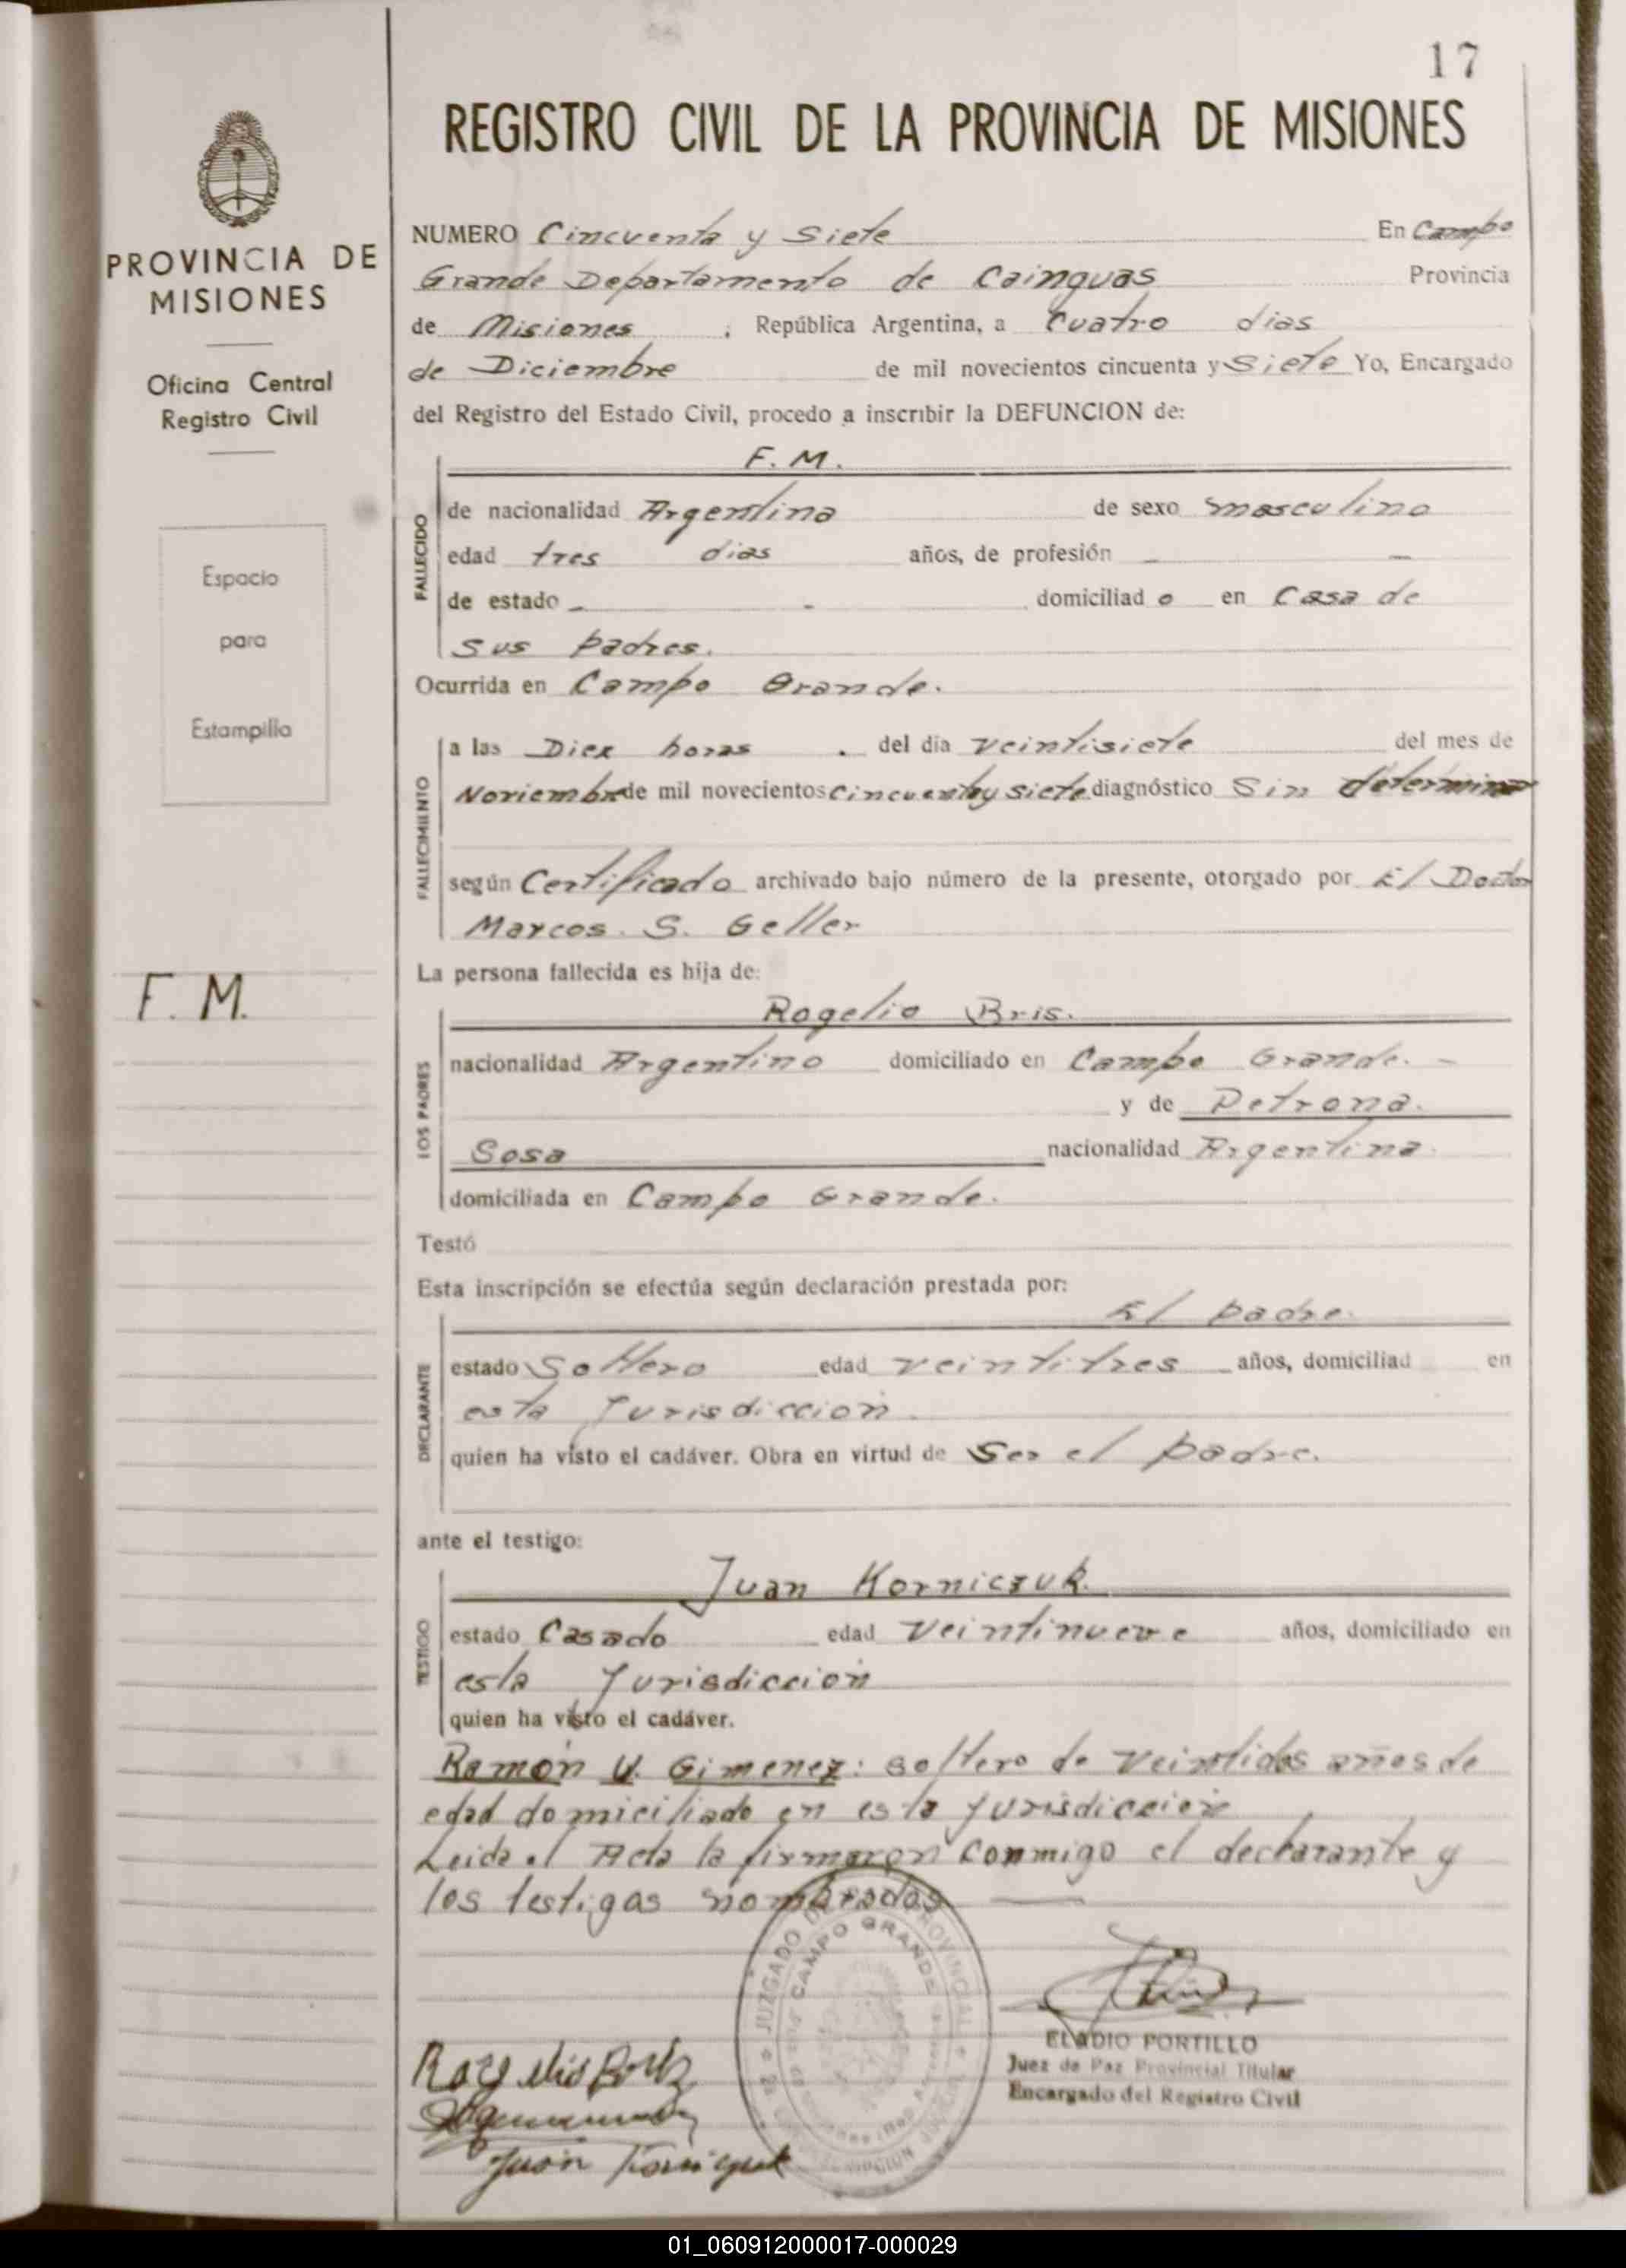 17
REGISTRO CIVIL DE LA PROVINCIA DE MISIONES
PROVINCIA DE
MISIONES
Oficina Central
Registro Civil
Espacio
para
Estampilla
F. M.
NUMERO Cincuenta y Siete En Campo
Grande Departamento de Cainguas Provincia
de Misiones, República Argentina, a Cuatro dias
de Diciembre de mil novecientos cincuenta y Siete Yo, Encargado
del Registro del Estado Civil, procedo a inscribir la DEFUNCION de:
F. M.
FALLECIDO
de nacionalidad Argentina de sexo masculino
edad tres dias años, de profesión — —
de estado - - domiciliado en Casa de
sus padres.
Ocurrida en Campo Grande.
FALLECIMIENTO
a las Diez horas . del día veintisiete del mes de
Noviembre de mil novecientos cincuenta y siete diagnóstico Sin determinar
según Certificado archivado bajo número de la presente, otorgado por El Doctor
Marcos. S. Geller
La persona fallecida es hija de:
LOS PADRES
Rogelio Bris.
nacionalidad Argentino domiciliado en Campo Grande. -
y de Petrona.
Sosa nacionalidad Argentina.
domiciliada en Campo Grande.
Testó
Esta inscripción se efectúa según declaración prestada por:
El padre.
DECLARANTE
estado Soltero edad veintitres años, domiciliad en
esta Jurisdiccion.
quien ha visto el cadáver. Obra en virtud de Ser el padre.
ante el testigo:
TESTIGO
Juan Korniczuk.
estado Casado edad veintinueve años, domiciliado en
esta Jurisdiccion
quien ha visto el cadáver.
Ramón V. Gimenez: soltero de veintidos años de
edad domiciliado en esta jurisdiccion
Leida el Acta la firmaron conmigo el declarante y
los testigos nombrados —
JUZGADO DE PAZ PROVINCIAL
CAMPO GRANDE
ELADIO PORTILLO
Juez de Paz Provincial Titular
Encargado del Registro Civil
Rogelio
Juan
01_060912000017-000029